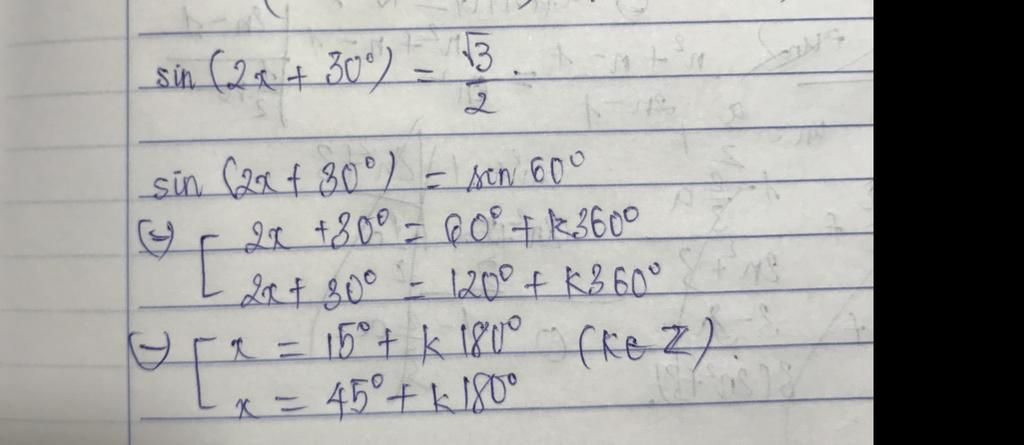 sin (2x + 30°) = √3/2.
sin (2x + 30°) = sin 60°
⇔ [ 2x + 30° = 60° + k360°
2x + 30° = 120° + k360°
⇔ [ x = 15° + k180° (k ∈ Z).
x = 45° + k180°